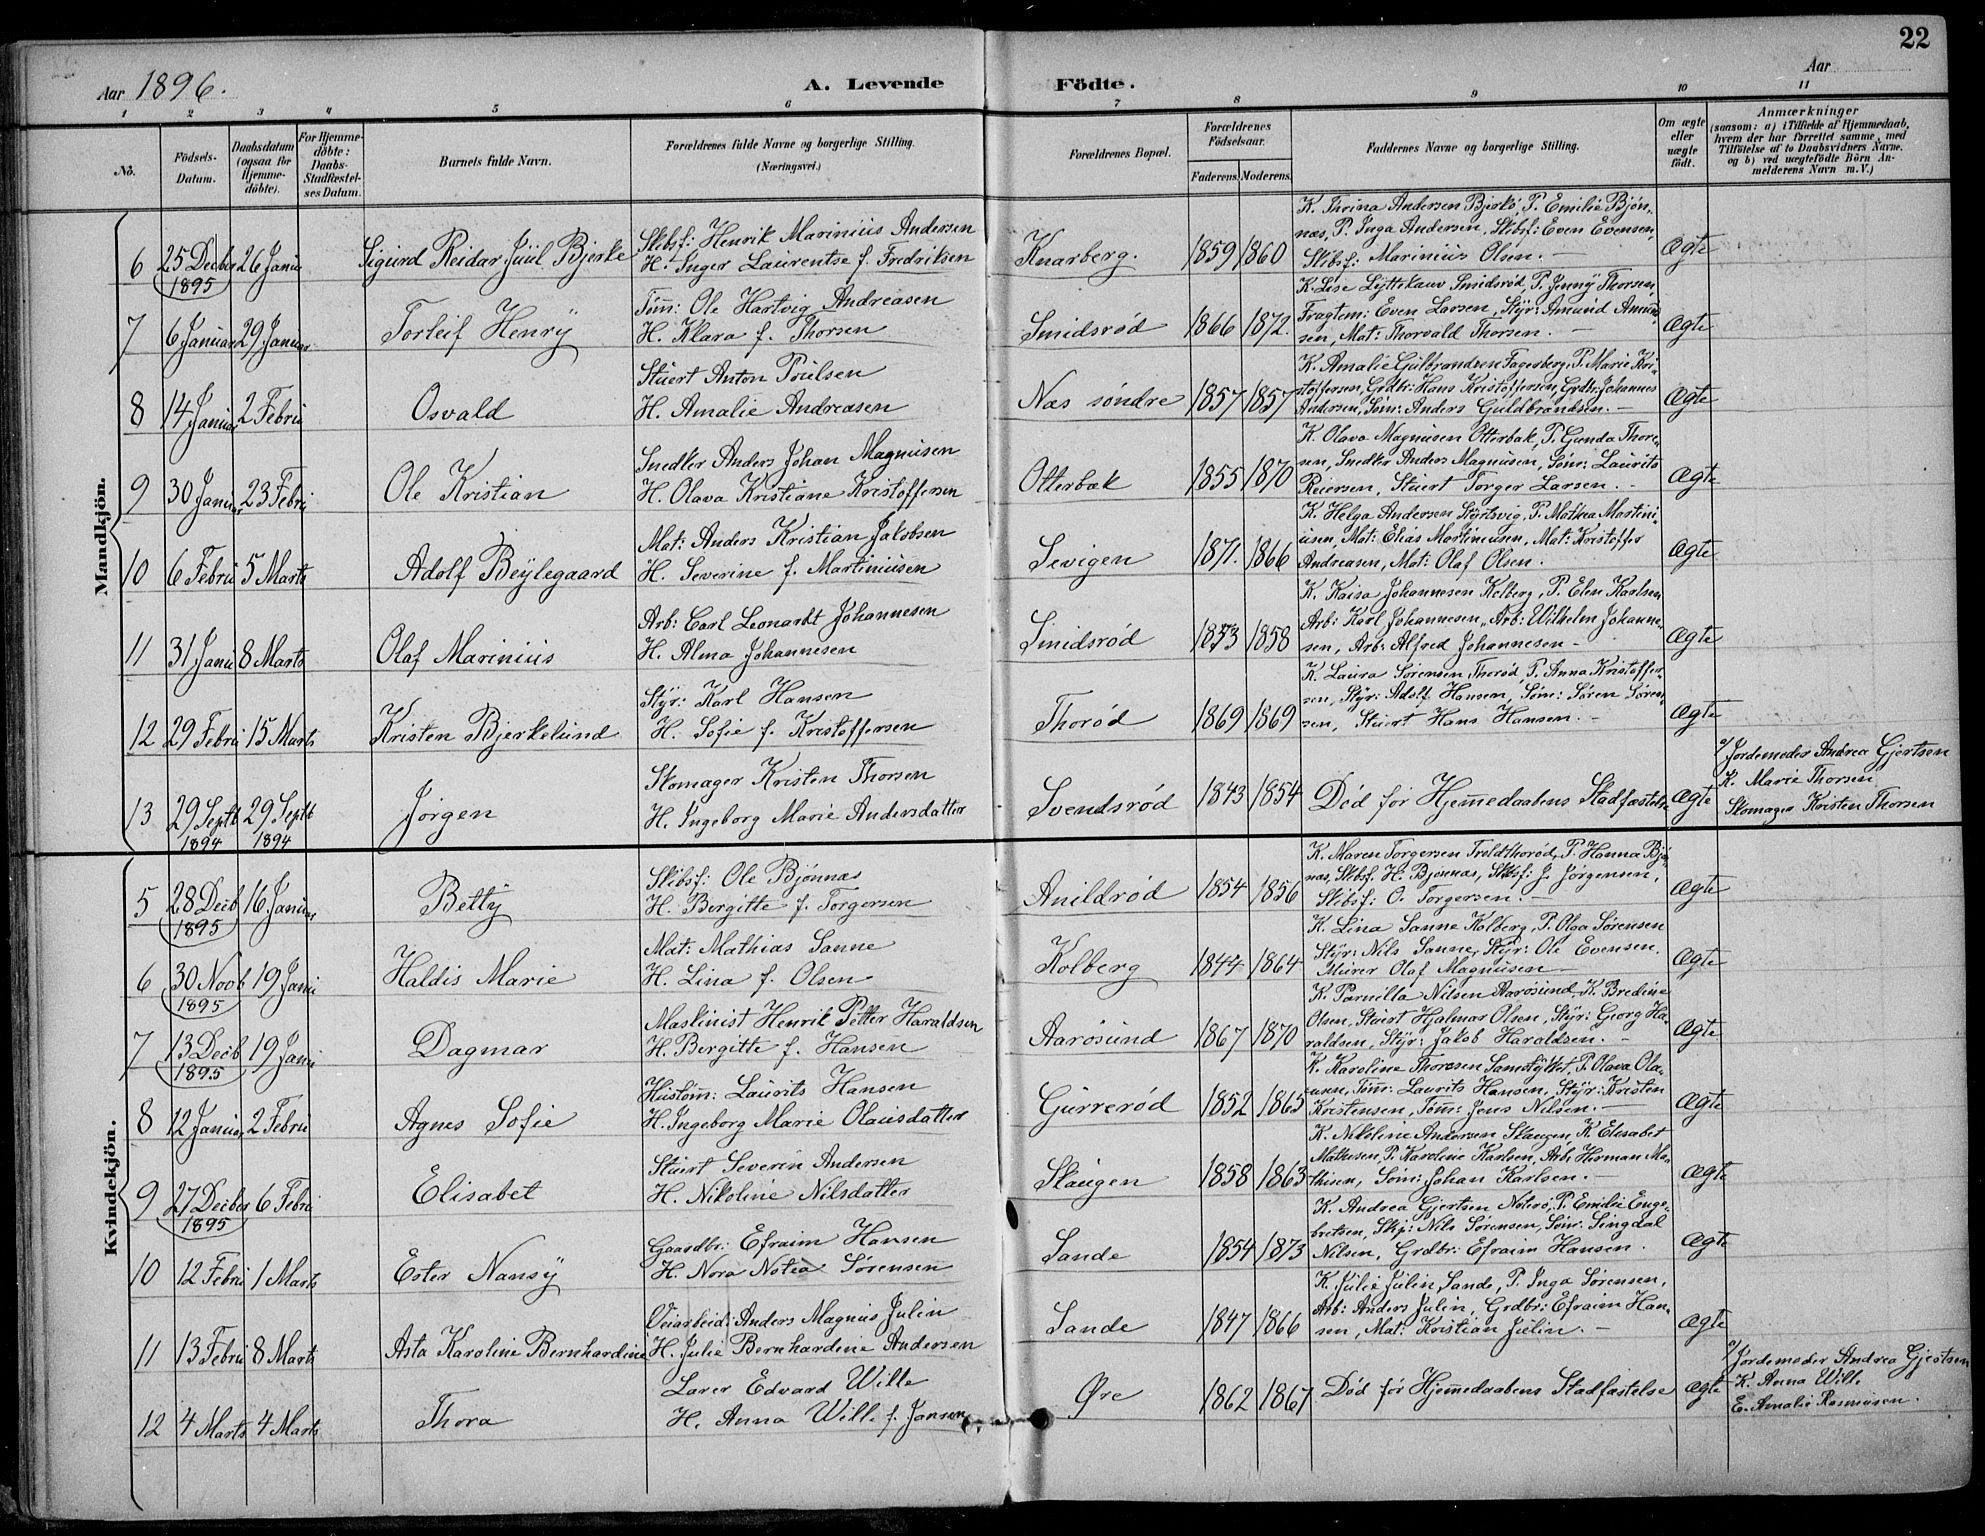 22
Aar 1896. A. Levende Fødte. Aar
1 2 3 4 5 6 7 8 9 10 11
No. Födsels-Datum. Daabsdatum (ogsaa for Hjemmedöbte). For Hjemmedöbte: Daabs-Stadfæstelses Datum. Barnets fulde Navn. Forældrenes fulde Navne og borgerlige Stilling. (Næringsvei.) Forældrenes Bopæl. Forældrenes Födselsaar. Faderens. Moderens. Faddernes Navne og borgerlige Stilling. Om ægte eller uægte født. Anmærkninger (saasom: a) i Tilfælde af Hjemmedaab, hvem der har forrettet samme, med Tilföielse af to Daabsvidners Navne, og b) ved uægtefödte Börn Anmelderens Navn m. V.)
Mandkjön.
K. Thrina Andersen Bjerkö, P. Emilie Bjøn-
6 25 Decber 26 Janu Sigurd Reidar Juul Bjerke Skibsf: Henrik Marinius Andersen Knarberg. 1859 1860 næs, P. Inga Andersen, Skibsf: Even Evensen, Ægte
1895 H. Inger Laurentse f. Fredriksen Skibsf: Marinius Olsen. —
K. Lise Lyttskauv Smidsrød, P. Jenny Thorsen,
7 6 Januar 29 Januar Torleif Henry Tøm: Ole Hartvig Andreasen Smidsrød 1866 1872. Fragtem: Even Larsen, Styr: Amund Amund- Ægte
H. Klara f. Thorsen sen, Mat: Thorvald Thorsen. —
K. Amalie Gulbrandsen Fagerberg, P. Marie Kri-
8 14 Januar 2 Febru Osvald Stuert Anton Poulsen Næs søndre 1857 1857 stoffersen, Grdbr: Hans Kristoffersen, Grdbr: Johannes Ægte
H. Amalie Andreasen Andersen, Tøm: Anders Guldbrandsen. —
K. Olava Magnusen Otterbæk, P. Gunda Thore-
9 30 Januar 23 Febru Ole Kristian Snedker Anders Johan Magnusen Otterbæk 1855 1870 sen, Snedker Anders Magnusen, Tømr: Laurits Ægte
H. Olava Kristiane Kristoffersen Reiersen, Stuert Torger Larsen. —
K. Helga Andersen Styrtsvig, P. Mathea Martini-
10 6 Febru 5 Marts Adolf Beylegaard Mat: Anders Kristian Jakobsen Sevigen 1871. 1866 usen, Mat: Elias Martiniusen, Mat: Kristoffer Ægte
H. Severine f. Martiniusen Andreasen, Mat: Olaf Olsen.
K. Kaisa Johannesen Kolberg, P. Elen Karlsen
11 31 Janu 8 Marts Olaf Marinius Arb: Carl Leonardt Johannesen Smidsrød 1853 1858 Arb: Karl Johannesen, Arb: Wilhelm Johanne- Ægte
H. Alma Johannesen sen, Arb: Alfred Johannesen —
K. Laura Sørensen Thorød, P. Anna Kristoffer-
12 29 Febru 15 Marts Kristen Bjerkelund Styr: Karl Hansen Thorød 1869 1869 sen, Styr: Adolf Hansen, Tøm: Søren Søren- Ægte
H. Sofie f. Kristoffersen sen, Stuert Hans Hansen. —
a/ Jordemoder Andrea Gjertsen
13 29 Septb 29 Septb Jørgen Skomager Kristen Thorsen Svendsrød 1843 1854 Død før Hjemmedaabens Stadfæstelse Ægte K. Marie Thorsen
1894 1894 H. Ingeborg Marie Andersdatter Skomager Kristen Thorsen
Kvindekjön.
K. Maren Torgersen Troldthorød, P. Hanna Bjø-
5 28 Decb 16 Januar Betty Skibsf: Ole Bjønnæs Anildrød 1854 1856 næs, Skibsf. H. Bjønnæs, Skibsf: J. Jørgensen, Ægte
1895 H. Bergitte f. Torgersen Skibsf: O. Torgersen. —
K. Lina Sanne Kolberg, P. Olga Sørensen
6 30 Novb 19 Janu Haldis Marie Mat: Mathias Sanne Kolberg 1844 1864 Styr: Nils Sanne, Styr: Ole Evensen. Ægte
1895 H. Lina f. Olsen Murer Olaf Magnusen —
K. Pernilla Nilsen Aarøsund, K. Bredine
7 13 Decb 19 Janu Dagmar Maskinist Henrik Petter Haraldsen Aarøsund 1867 1870 Olsen, Stuert Hjalmar Olsen, Styr: Georg Ha- Ægte
1895 H. Bergitte f. Hansen raldsen, Styr: Jakob Haraldsen. —
K. Karoline Thoresen Samstykket, P. Olava Ola-
8 12 Januar 2 Febru Agnes Sofie Hustøm: Laurits Hansen Gurrerød 1852 1865 usen, Tøm: Laurits Hansen, Styr: Kristen Ægte
H. Ingeborg Marie Olausdatter Kristensen, Tøm: Jens Nilsen. —
K. Nikoline Andersen Skaugen, K. Elisabet
9 27 Decber 6 Febru Elisabet Stuert Severin Andersen Skaugen 1858 1863 Mathisen, P. Karoline Karlsen, Arb: Herman Ma- Ægte
1895 H. Nikoline Nilsdatter thisen, Tøm: Johan Karlsen. —
K. Andrea Gjertsen Nøterø, P. Emilie Enge-
10 12 Febru 1 Marts Ester Nansy Gaardbr: Efraim Hansen Sande 1854 1873 bretsen, Skp: Nils Sørensen, Tømr. Singdal Ægte
H. Nora Notea Sørensen Nilsen, Grdbr: Efraim Hansen.
K. Julie Julin Sande, P. Inga Sørensen,
11 13 Febru 8 Marts Asta Karoline Bernhardine Veiarbeid: Anders Magnus Julin Sande 1847 1866 Arb: Anders Julin, Grdbr: Efraim Han- Ægte
H. Julie Bernhardine Andersen sen, Mat: Kristian Julin. —
a/ Jordemoder Andrea Gjertsen
12 4 Marts 4 Marts Thora Lærer Edvard Wille Øre 1862 1867 Død før Hjemmedaabens Stadfæstelse Ægte K. Anna Wille
H. Anna Wille f. Jansen E. Amalie Rasmusen.